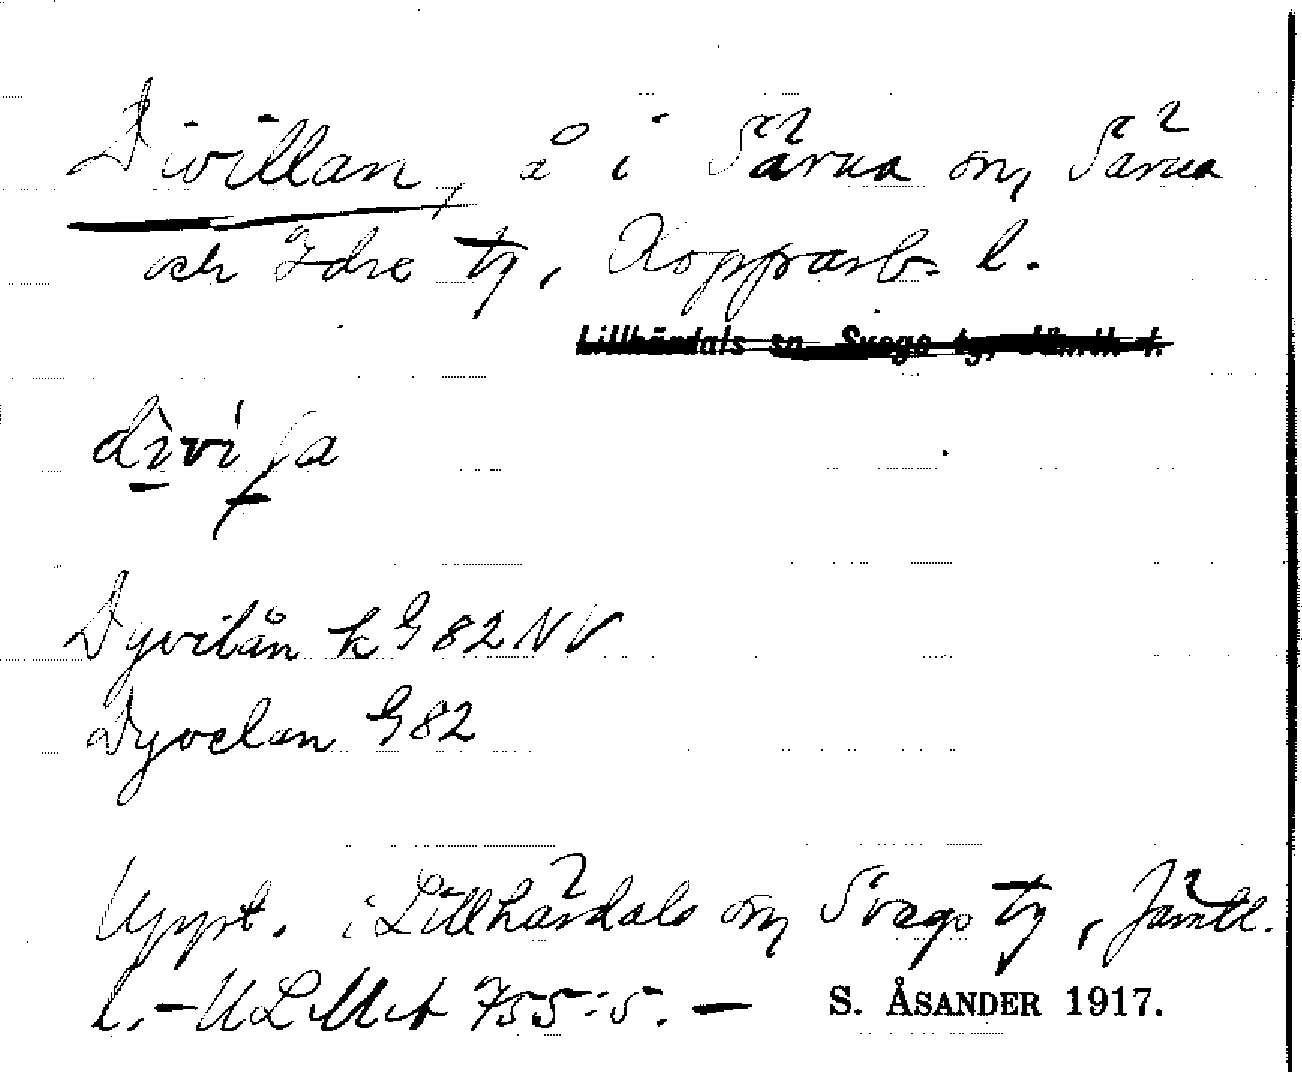 Divillan, å i Särna sn, Särna
och Idre tg, Kopparb. l.
Lillhärdals sn, Svegs tg, Jämtl. l.
Dyvilån k G 82 NV
Dyvelan G 82
Uppt. i Lillhärdals sn, Svegs tg, Jämtl.
l. – ULMA 755:5. – S. ÅSANDER 1917.